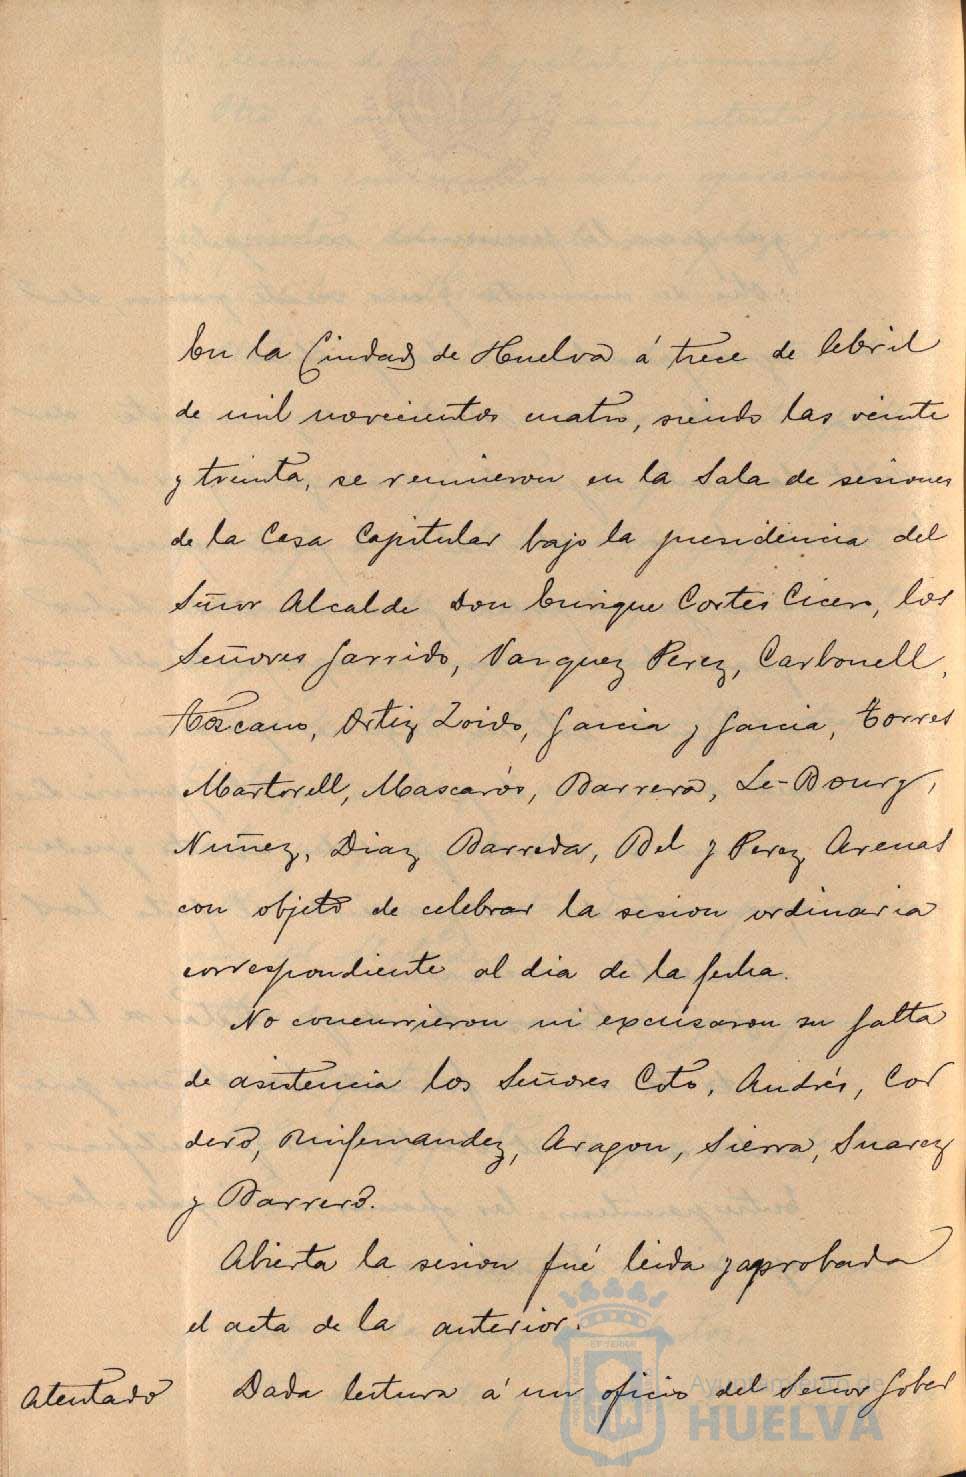 En la Ciudad de Huelva á trece de Abril
de mil novecientos cuatro, siendo las veinte
y treinta, se reunieron en la Sala de sesiones
de la Casa Capitular bajo la presidencia del
Señor Alcalde Don Enrique Cortes Cicero, los
Señores Garrido, Vazquez Perez, Carbonell,
Toscano, Ortiz Zoido, Garcia y Garcia, Torres
Martorell, Mascarós, Barrera, Le-Bourg,
Nuñez, Diaz Barreda, Bel y Perez Arenas
con objeto de celebrar la sesion ordinaria
correspondiente al dia de la fecha.
No concurrieron ni excusaron su falta
de asistencia los Señores Coto, Andrés, Cor
dero, Ruifernandez, Aragon, Sierra, Suarez
y Barrero.
Abierta la sesion fué leida y aprobada
el acta de la anterior.
Atentado
Dada lectura á un oficio del Señor Gober
Ayuntamiento de
HUELVA